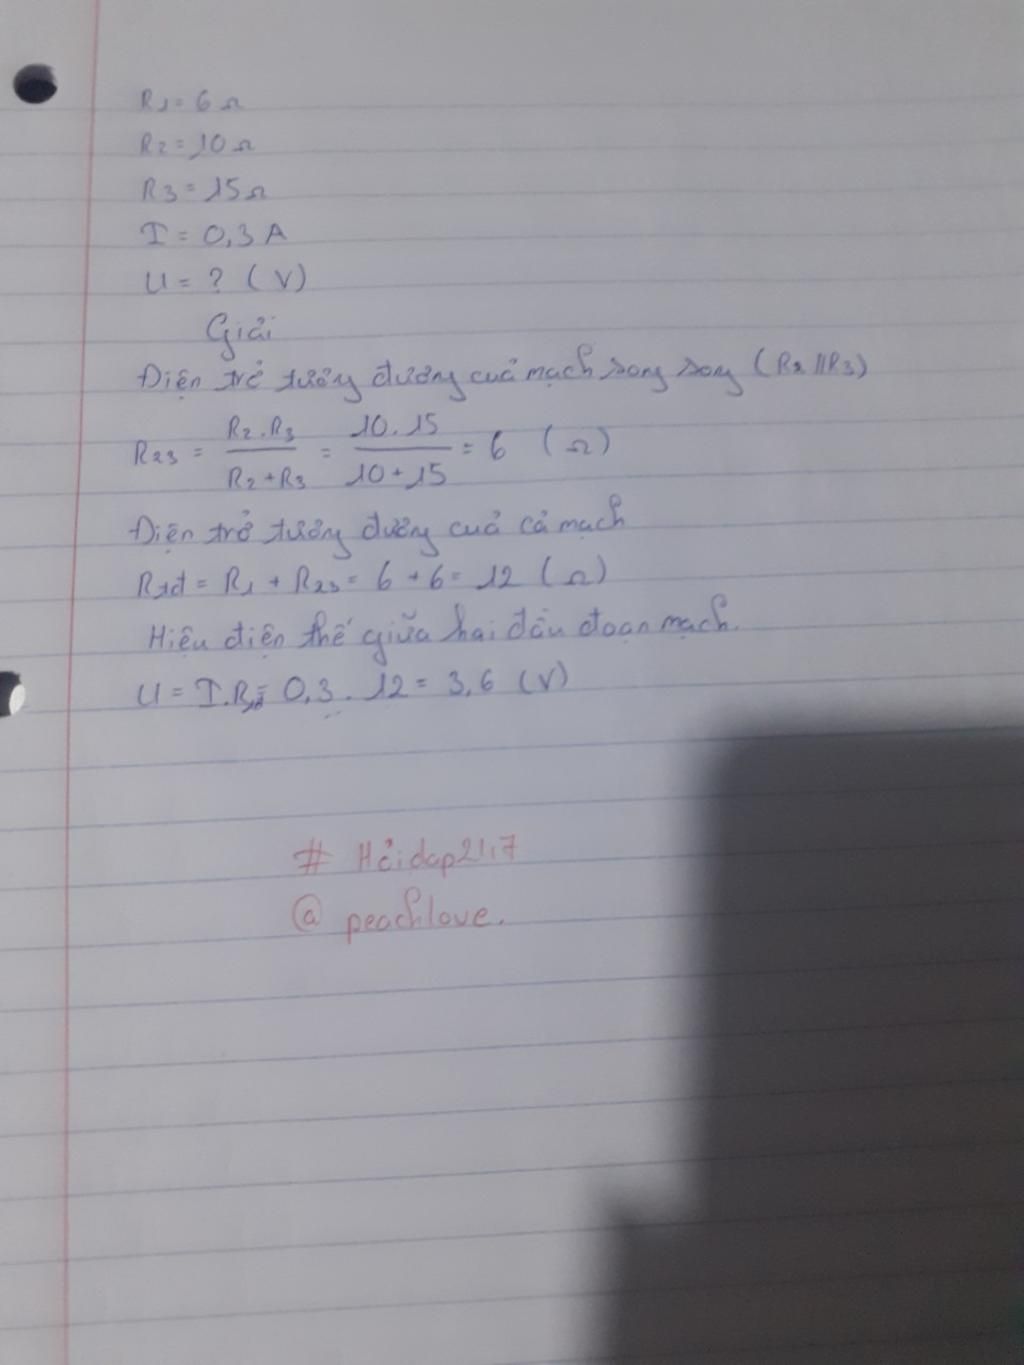 R1 = 6 Ω
R2 = 10 Ω
R3 = 15 Ω
I = 0,3 A
U = ? (V)
Giải
Điện trở tương đương của mạch song song (R2 // R3)
R23 = R2.R3 / R2+R3 = 10.15 / 10+15 = 6 (Ω)
Điện trở tương đương của cả mạch
Rtđ = R1 + R23 = 6 + 6 = 12 (Ω)
Hiệu điện thế giữa hai đầu đoạn mạch.
U = I.Rtđ = 0,3 . 12 = 3,6 (V)
# Hỏidap247
@ peachlove.